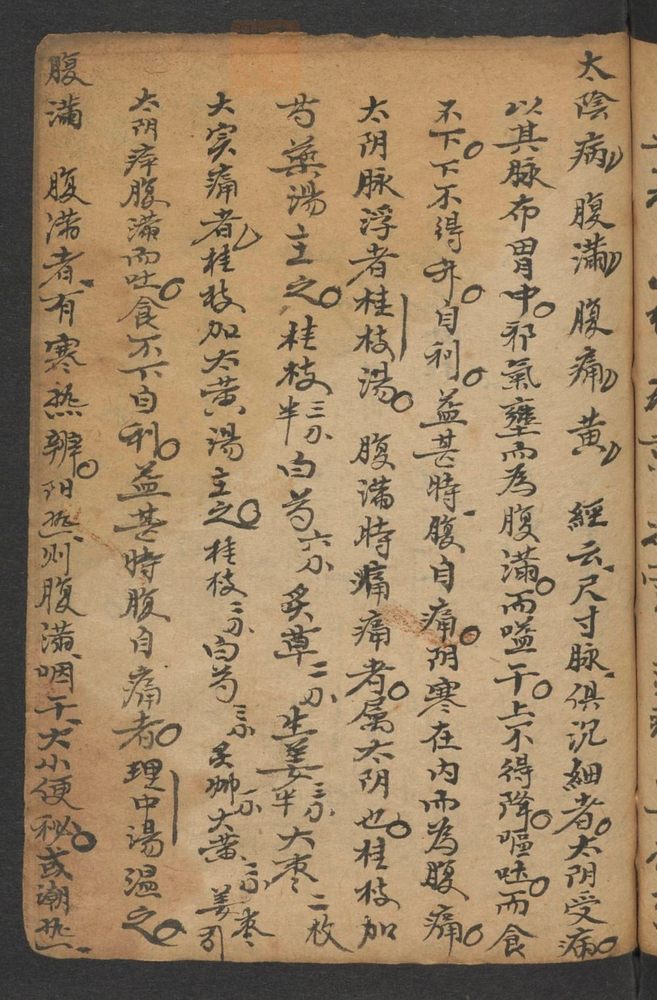 太陰病 腹滿 腹痛 黄 經云尺寸脉俱沉細者太阴受病
以其脉布胃中邪氣壅而為腹滿而嗌干上不得降嘔吐而食
不下下不得升自利益甚時腹自痛阴寒在内而為腹痛
太阴脉浮者桂枝湯 腹滿時痛痛者属太阴也桂枝加
芍藥湯主之桂枝三分半白芍六分炙草二分生姜三分半大枣二枚
大实痛者桂枝加大黄湯主之桂枝三分白芍三分炙艸二分大黄二分姜枣引
太阴病腹滿而吐食不下自利益甚時腹自痛者理中湯温之
腹滿 腹滿者有寒热辨阳热则腹滿咽干大小便秘或潮热